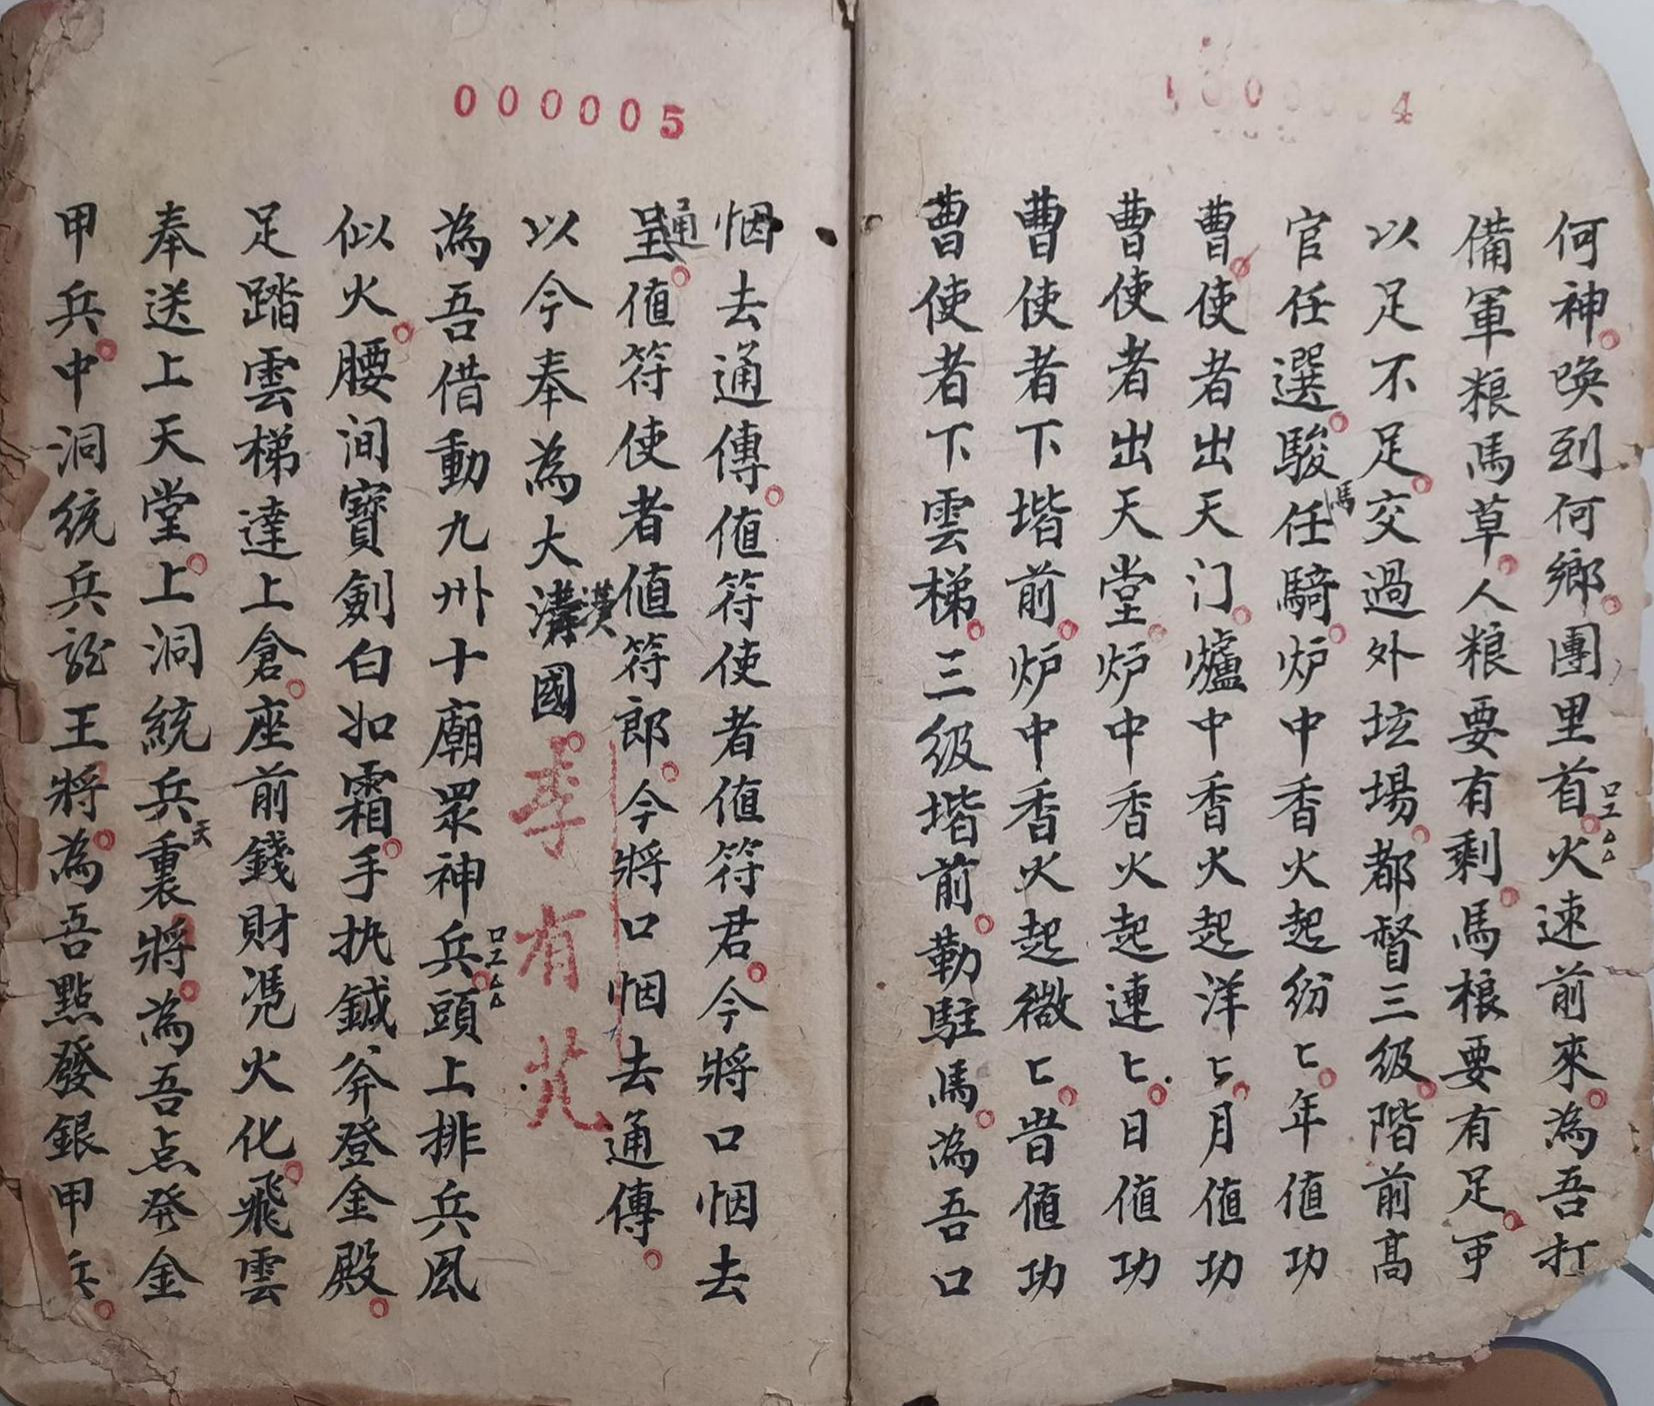 000004
何神喚到何鄉團里首火速前來為吾打
備軍粮馬草人粮要有剩馬粮要有足可
以足不足交過外垓場都督三級階前高
官任選駿任騎炉中香火起紛匕年值功
馬
曹使者出天门爐中香火起洋匕月值功
曹使者出天堂炉中香火起連匕日值功
曹使者下堦前炉中香火起微匕昔值功
曹使者下雲梯三級堦前勒駐馬為吾口
000005
烟去通傳值符使者值符君今將口烟去
通
值符使者值符郎今將口烟去通傳
以今奉為大國
漢
李有
為吾借動九州十廟眾神兵頭上排兵風
似火腰间寶劍白如霜手执鉞斧登金殿
足踏雲梯達上倉座前錢財凴火化飛雲
奉送上天堂上洞統兵裏將為吾点発金
天
甲兵中洞統兵王將為吾點發銀甲兵